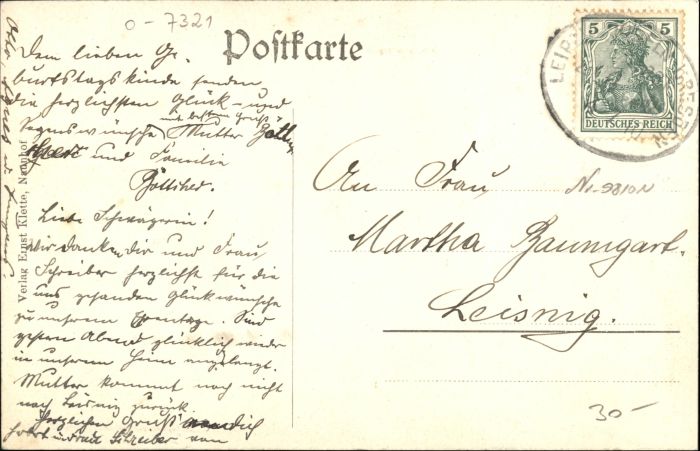 0-7321
Postkarte
5 5
DEUTSCHES REICH
LEIPZ DRESDEN
Dem lieben Ge-
burtstagskinde senden
die herzlichsten Glück- und
mit besten Gruß
Segenswünsche Mutter
und Familie
Böttcher.
Liebe Schwägerin!
Wir danken Dir und Frau
Schreiber herzlichst für die
uns gesanden Glückwünsche
zu unserem Sind
gestern Abend glücklich wieder
in unserem Heim angelangt.
Mutter kommt noch nicht
nach Leisnig zurück.
Herzlichen Gruß Dich
und Schreiber von
Verlag Ernst Klette, Naunhof
An Frau
Nr. 9810N
Martha Baumgart.
Leisnig.
30-